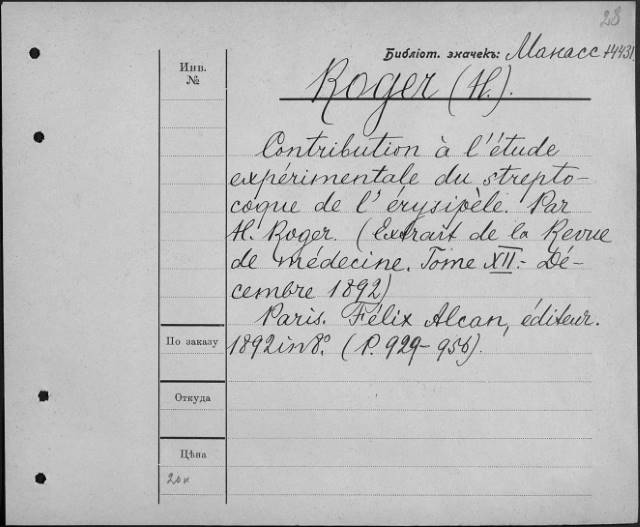 28
Библіот. значекъ: Манасс 14431
Инв.
№
Roger (H.).
Contribution à l'étude
expérimentale du strepto-
coque de l'érysipèle. Par
H. Roger. (Extrait de la Revue
de médecine. Tome XII.- Dé-
cembre 1892)
Paris. Félix Alcan, éditeur.
По заказу
1892 in 8.° (P. 929-956).
Откуда
Цѣна